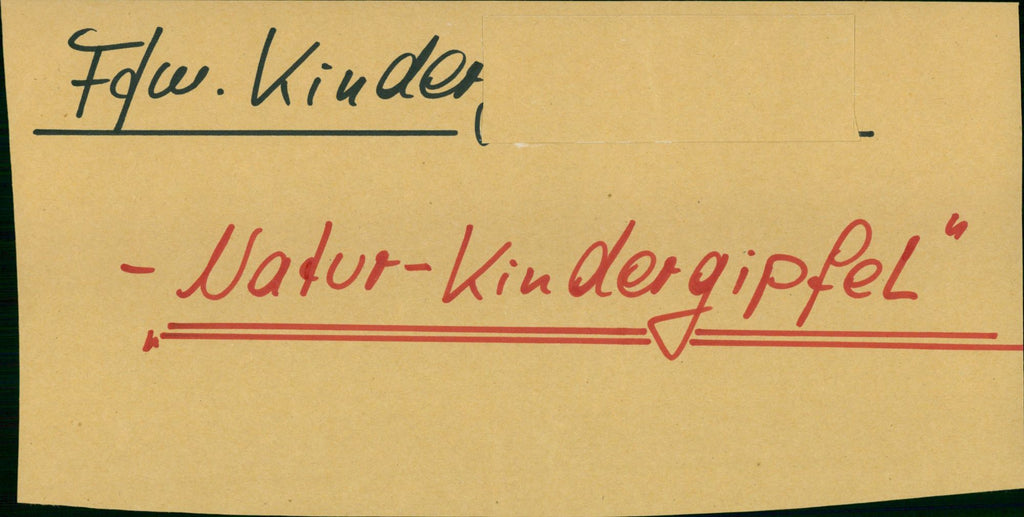 Fdw. Kinder
- „Natur-Kindergipfel“